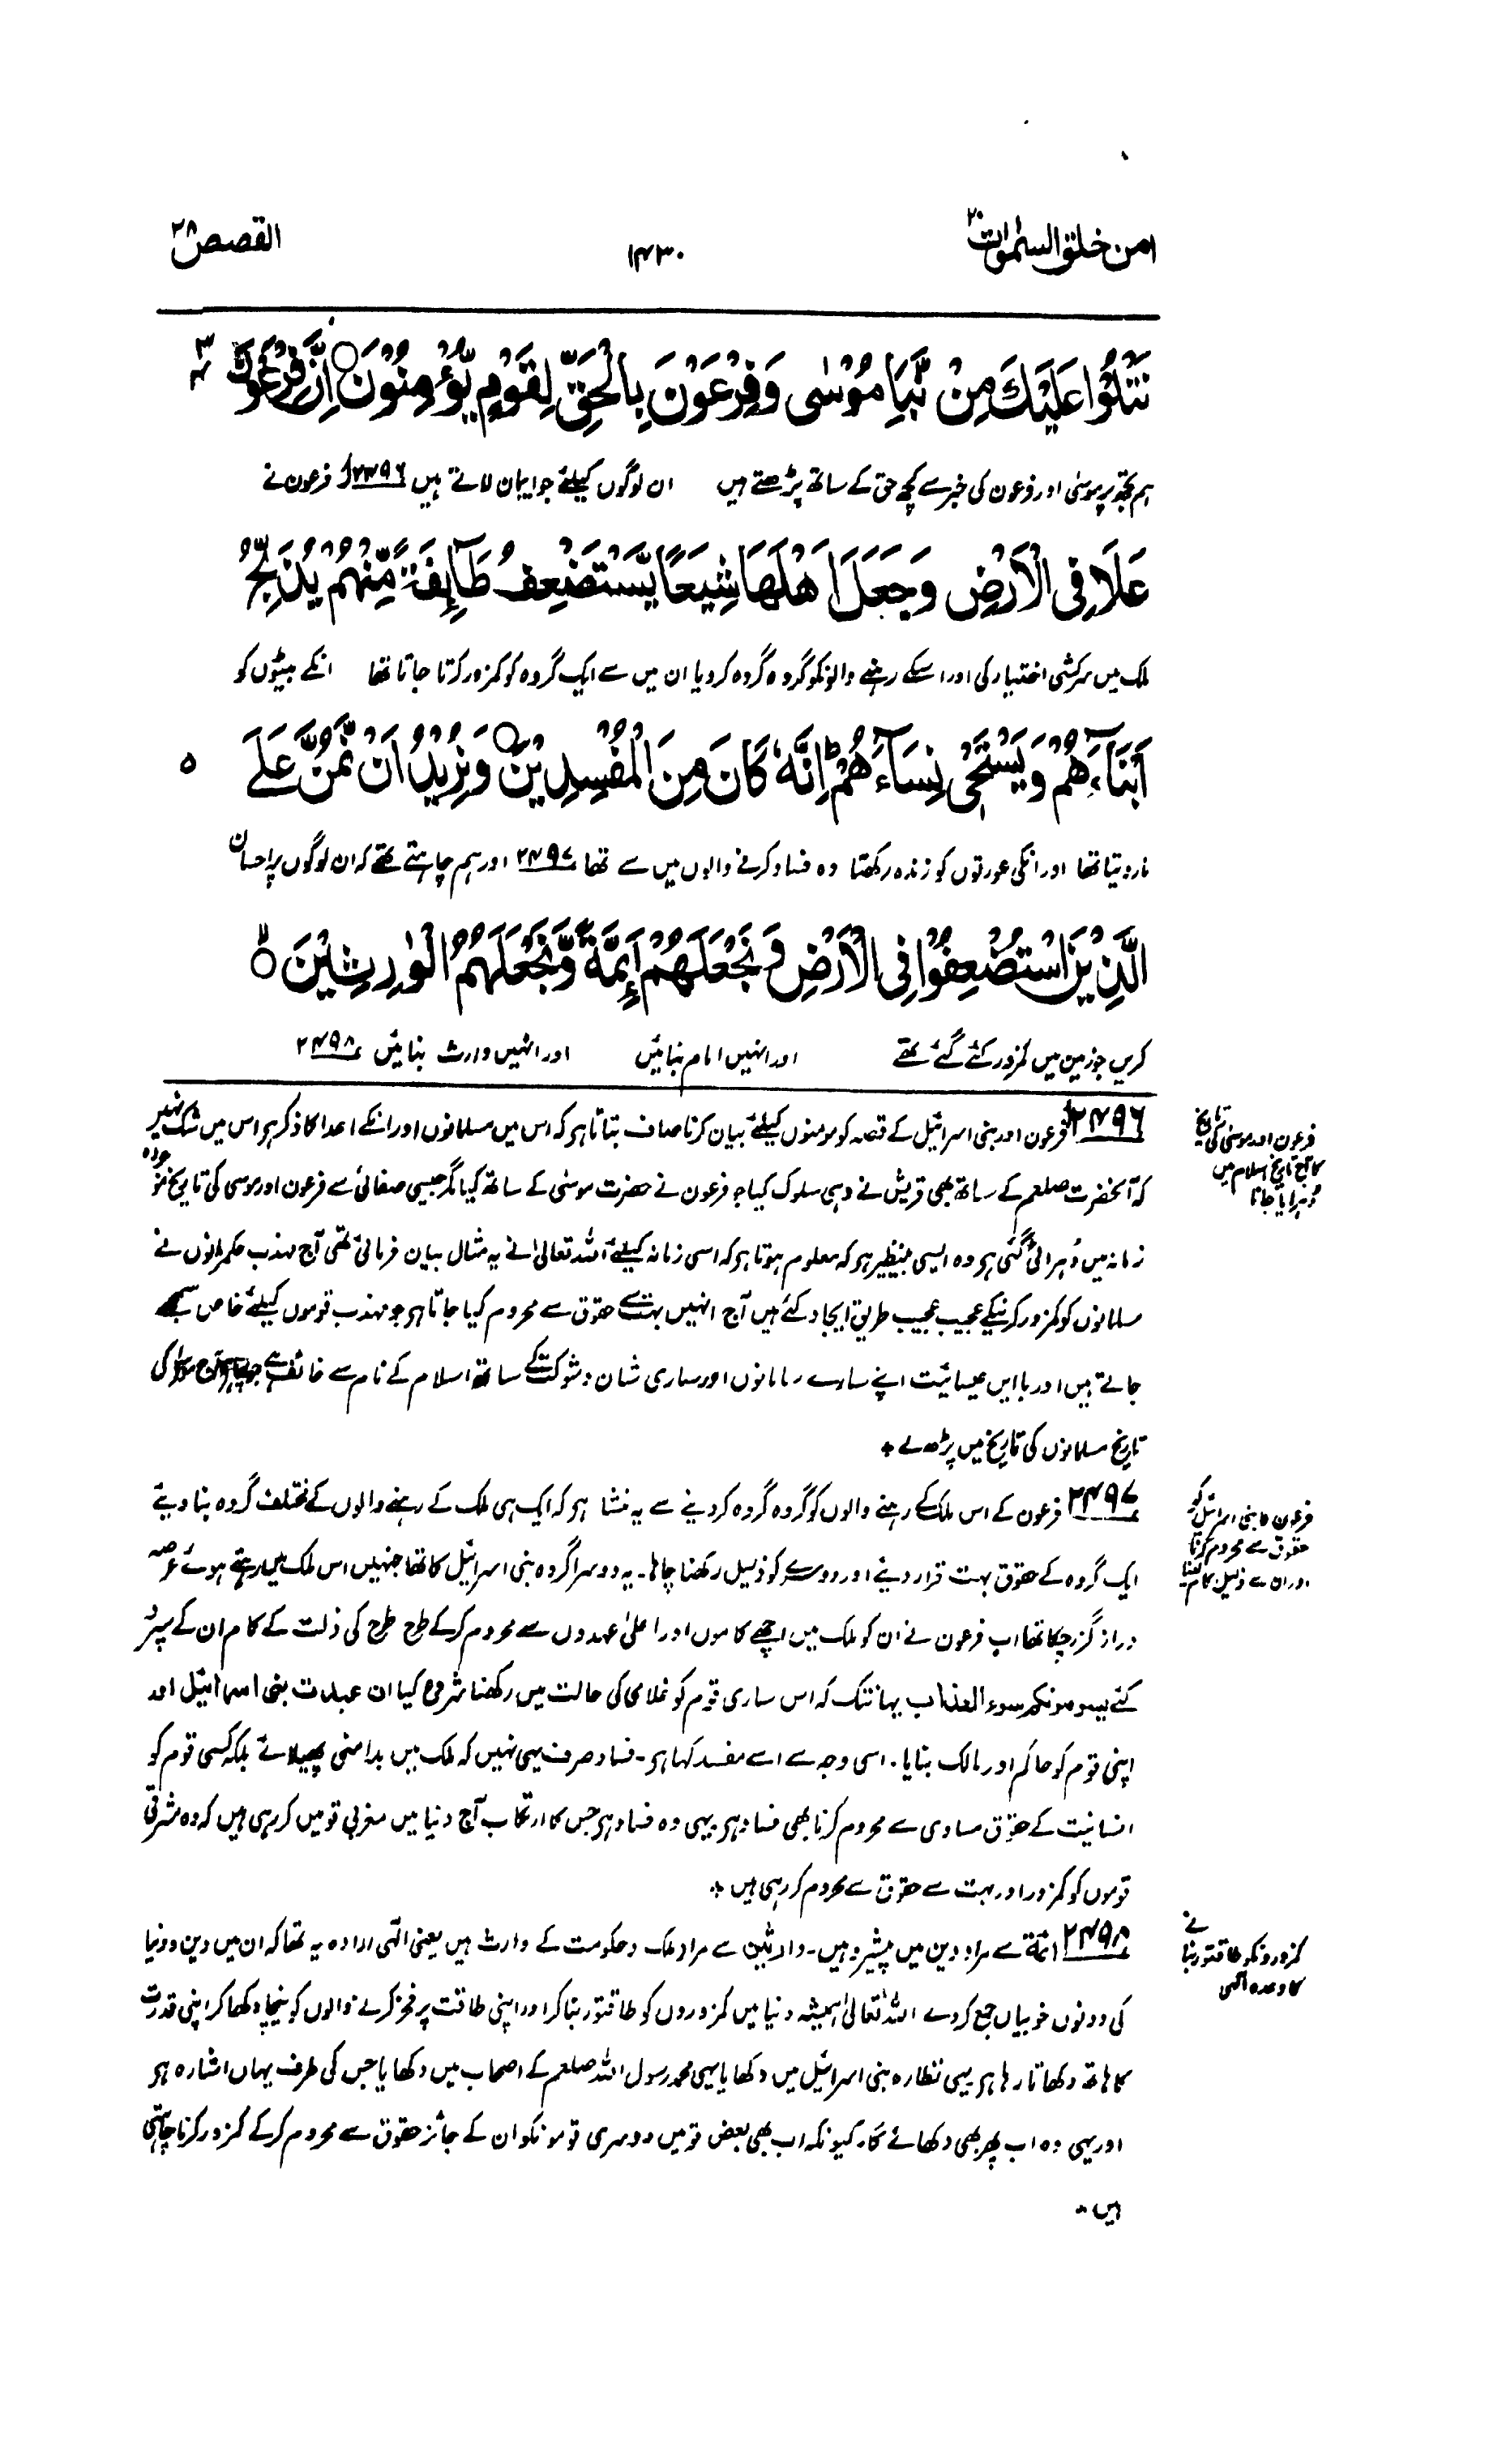 امن خلق السمٰوات ۲۰
۱۴۳۰
القصص ۲۸
نَتْلُوْا عَلَيْكَ مِنْ نَّبَاِ مُوْسٰى وَفِرْعَوْنَ بِالْحَقِّ لِقَوْمٍ يُّؤْمِنُوْنَ ○ اِنَّ فِرْعَوْنَ
۳
۴
ہم تجھ پر موسٰی اور فرعون کی خبر سے کچھ حق کے ساتھ پڑھتے ہیں ان لوگوں کیلئے جو ایمان لاتے ہیں ۲۴۹۶ فرعون نے
عَلَا فِى الْاَرْضِ وَجَعَلَ اَهْلَهَا شِيَعًا يَّسْتَضْعِفُ طَآىِٕفَةً مِّنْهُمْ يُذَبِّحُ
ملک میں سرکشی اختیار کی اور اسکے رہنے والونکو گروہ گروہ کر دیا ان میں سے ایک گروہ کو کمزور کرتا جاتا تھا انکے بیٹوں کو
اَبْنَآءَهُمْ وَيَسْتَحْىٖ نِسَآءَهُمْ ؕ اِنَّهٗ كَانَ مِنَ الْمُفْسِدِيْنَ ○ وَنُرِيْدُ اَنْ نَّمُنَّ عَلَى
۵
مار دیتا تھا اور انکی عورتوں کو زندہ رکھتا وہ فساد کرنے والوں میں سے تھا ۲۴۹۷ اور ہم چاہتے تھے کہ ان لوگوں پر احسان
الَّذِيْنَ اسْتُضْعِفُوْا فِى الْاَرْضِ وَنَجْعَلَهُمْ اَىِٕمَّةً وَّنَجْعَلَهُمُ الْوٰرِثِيْنَ ○
کریں جو زمین میں کمزور کئے گئے تھے اور انہیں امام بنائیں اور انہیں وارث بنائیں ۲۴۹۸
۲۴۹۶ فرعون اور بنی اسرائیل کے قصہ کو مومنوں کیلئے بیان کرنا صاف بتاتا ہر کہ اس میں مسلمانوں اور انکے اعدا کا ذکر ہر اس میں شک نہیں
کہ آنحضرت صلعم کے ساتھ بھی قریش نے وہی سلوک کیا جو فرعون نے حضرت موسٰی کے ساتھ کیا مگر جیسی صفائی سے فرعون اور موسی کی تاریخ موجودہ
زمانہ میں دُہرائی گئی ہر وہ ایسی بینظیر ہر کہ معلوم ہوتا ہر کہ اسی زمانہ کیلئے اللہ تعالیٰ نے یہ مثال بیان فرمائی تھی آج مہذب حکمرانوں نے
مسلمانوں کو کمزور کرنیکے عجیب عجیب طریق ایجاد کئے ہیں آج انہیں بہت سے حقوق سے محروم کیا جاتا ہر جو مہذب قوموں کیلئے خاص سمجھے
جاتے ہیں اور باایں عیسائیت اپنے سارے سامانوں اور ساری شان و شوکت کے ساتھ اسلام کے نام سے خائف ہے
تاریخ مسلمانوں کی تاریخ میں پڑھ لے ٭
فرعون اور موسٰی کی تاریخ
کا آج تاریخ اسلام میں
دُہرایا جانا
۲۴۹۷ فرعون کے اس ملک کے رہنے والوں کو گروہ گروہ کر دینے سے یہ منشا ہر کہ ایک ہی ملک کے رہنے والوں کے مختلف گروہ بنا دیئے
ایک گروہ کے حقوق بہت قرار دیئے اور دوسرے کو ذلیل رکھنا چاہا۔ یہ دوسرا گروہ بنی اسرائیل کا تھا جنہیں اس ملک میں رہتے ہوئے عرصہ
دراز گزر چکا تھا اب فرعون نے ان کو ملک میں اچھے کاموں اور اعلیٰ عہدوں سے محروم کر کے طرح طرح کی ذلت کے کام ان کے سپرد
کئے یسومونکم سوء العذاب یہانتک کہ اس ساری قوم کو غلامی کی حالت میں رکھنا شروع کیا ان عبدت بنی اسرائیل اور
اپنی قوم کو حاکم اور مالک بنایا۔ اسی وجہ سے اسے مفسد کہا ہر۔ فساد صرف یہی نہیں کہ ملک میں بدامنی پھیلائے بلکہ کسی قوم کو
انسانیت کے حقوق مساوی سے محروم کرنا بھی فساد ہر یہی وہ فساد ہر جس کا ارتکاب آج دنیا میں مغربی قومیں کر رہی ہیں کہ وہ مشرقی
قوموں کو کمزور اور بہت سے حقوق سے محروم کر رہی ہیں ٭
فرعون کا بنی اسرائیل کو
حقوق سے محروم کرنا
اور ان سے ذلیل کام لینا
۲۴۹۸ ائمۃ سے مراد دین میں پیشرو ہیں۔ وارثین سے مراد ملک و حکومت کے وارث ہیں یعنی الٰہی ارادہ یہ تھا کہ ان میں دین و دنیا
کی دونوں خوبیاں جمع کر دے اللہ تعالیٰ ہمیشہ دنیا میں کمزوروں کو طاقتور بنا کر اور اپنی طاقت پر فخر کرنے والوں کو نیچا دکھا کر اپنی قدرت
کا ہاتھ دکھاتا رہا ہر یہی نظارہ بنی اسرائیل میں دکھایا یہی محمد رسول اللہ صلعم کے اصحاب میں دکھایا جس کی طرف یہاں اشارہ ہر
اور یہی وہ اب پھر بھی دکھائے گا۔ کیونکہ اب بھی بعض قومیں دوسری قومونکو ان کے جائز حقوق سے محروم کر کے کمزور کرنا چاہتی
ہیں ٭
کمزورونکو طاقتور بنانے
کا وعدہ الٰہی